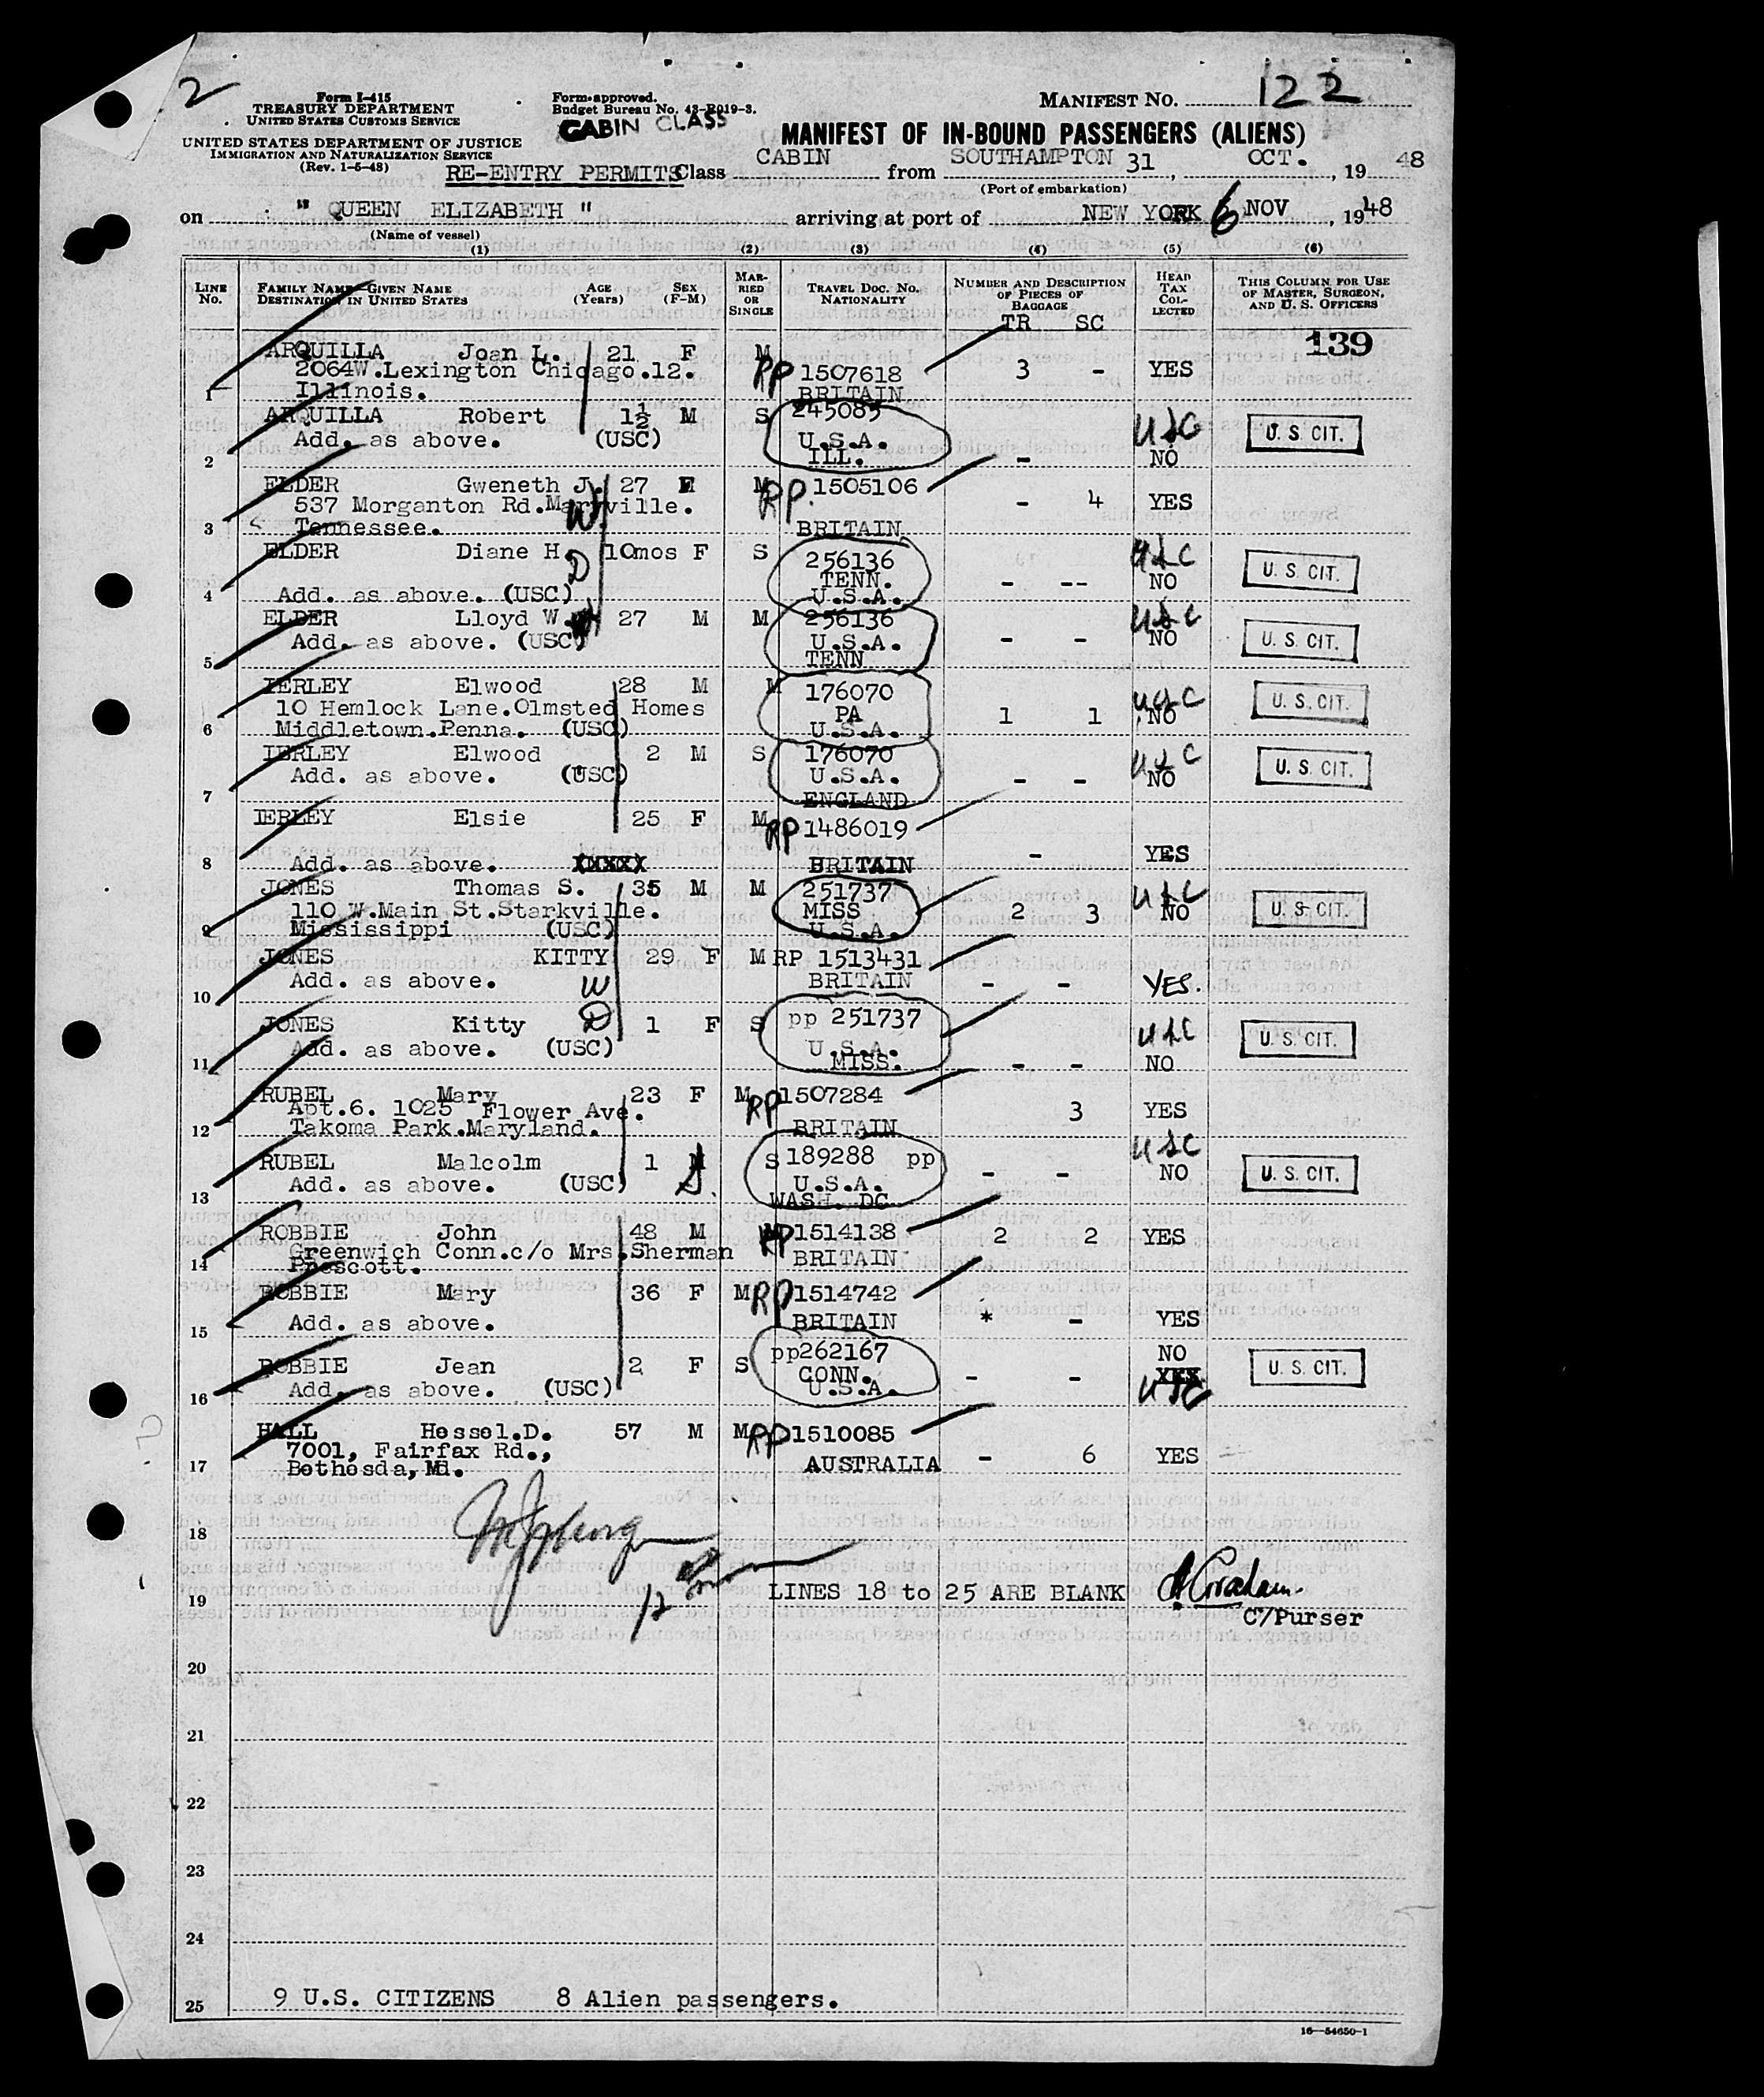 2
Form I-415
TREASURY DEPARTMENT
UNITED STATES CUSTOMS SERVICE
UNITED STATES DEPARTMENT OF JUSTICE
IMMIGRATION AND NATURALIZATION SERVICE
(Rev. 1-5-48)
Form approved.
Budget Bureau No. 43-R019-3.
CABIN CLASS
MANIFEST NO. 122
MANIFEST OF IN-BOUND PASSENGERS (ALIENS)
RE-ENTRY PERMITS Class CABIN from SOUTHAMPTON 31, OCT., 19 48
(Port of embarkation)
on " QUEEN ELIZABETH " arriving at port of NEW YORK 6 NOV, 1948
(Name of vessel)
(1) (2) (3) (4) (5) (6)
LINE No. FAMILY NAME—GIVEN NAME DESTINATION IN UNITED STATES AGE (Years) SEX (F-M) MARRIED OR SINGLE TRAVEL DOC. NO. NATIONALITY NUMBER AND DESCRIPTION OF PIECES OF BAGGAGE HEAD TAX COLLECTED THIS COLUMN FOR USE OF MASTER, SURGEON, AND U. S. OFFICERS
TR SC
139
ARQUILLA Joan L. 21 F M
2064W.Lexington Chicago.12. RP 1507618 3 - YES
1 Illinois. BRITAIN
ARQUILLA Robert 1½ M S 245085 USC U. S. CIT.
Add. as above. (USC) U.S.A.
2 ILL. - NO
ELDER Gweneth J. 27 F M RP. 1505106
537 Morganton Rd.Maryville. - 4 YES
3 Tennessee. W BRITAIN
ELDER Diane H. 10mos F S 256136 USC U. S. CIT.
D TENN. - -- NO
4 Add. as above. (USC) U.S.A.
ELDER Lloyd W. 27 M M 256136 USC
Add. as above. (USC) U.S.A. - - NO U. S. CIT.
5 TENN
IERLEY Elwood 28 M M 176070 USC U. S. CIT.
10 Hemlock Lane.Olmsted Homes PA 1 1 NO
6 Middletown.Penna. (USC) U.S.A.
IERLEY Elwood 2 M S 176070 USC
Add. as above. (USC) U.S.A. - - NO U. S. CIT.
7 ENGLAND
IERLEY Elsie 25 F M RP 1486019
8 Add. as above. BRITAIN - YES
JONES Thomas S. 35 M M 251737 USC
110 W.Main St.Starkville. MISS 2 3 NO U. S. CIT.
9 Mississippi (USC) U.S.A.
JONES KITTY 29 F M RP 1513431
10 Add. as above. W BRITAIN - - YES.
JONES Kitty D 1 F S pp 251737 USC U. S. CIT.
Add. as above. (USC) U.S.A.
11 MISS. - - NO
RUBEL Mary 23 F M RP 1507284
Apt.6. 1025 Flower Ave. 3 YES
12 Takoma Park.Maryland. BRITAIN
RUBEL Malcolm 1 M S 189288 pp USC
Add. as above. (USC) U.S.A. - - NO U. S. CIT.
13 WASH. DC.
ROBBIE John 48 M M RP 1514138 2 2 YES
Greenwich Conn.c/o Mrs.Sherman BRITAIN
14 Prescott.
ROBBIE Mary 36 F M RP 1514742
15 Add. as above. BRITAIN * - YES
ROBBIE Jean 2 F S pp262167 NO U. S. CIT.
CONN. - - XXX
16 Add. as above. (USC) U.S.A. USC
HALL Hessel.D. 57 M M RP 1510085
7001, Fairfax Rd., - 6 YES
17 Bethesda, Md. AUSTRALIA
18
19 12 LINES 18 to 25 ARE BLANK A Graham.
C/Purser
20
21
22
23
24
25 9 U.S. CITIZENS 8 Alien passengers.
16—54650-1